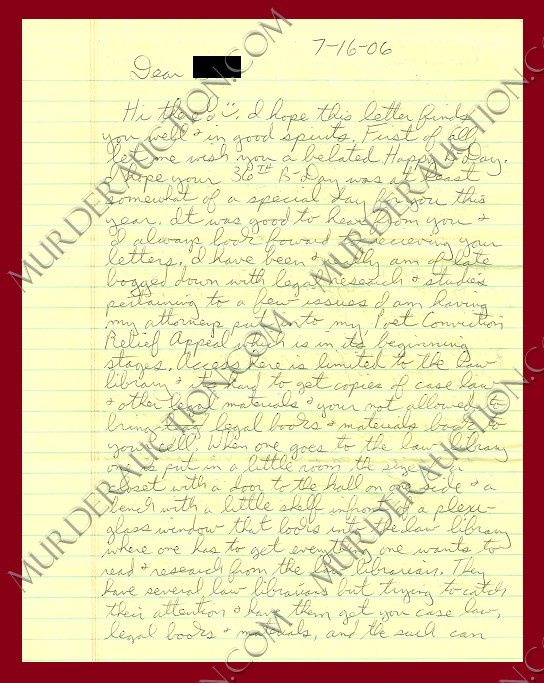 7-16-06
Dear
Hi there! I hope this letter finds
you well & in good spirits. First of all
let me wish you a belated Happy B-Day.
I hope your 36TH B-Day was at least
somewhat of a special day for you this
year. It was good to hear from you &
I always look foward to recieving your
letters. I have been & really am of late
bogged down with legal research & studies
pertaining to a few issues I am having
my attorneys put into my Post Conviction
Relief Appeal which is in its beginning
stages. Access here is limited to the law
library & it's hard to get copies of case law
& other legal materials & your not allowed to
bring any legal books & materials back to
your cell. When one goes to the law library
one is put in a little room the size of a
closet with a door to the hall on one side & a
bench with a little shelf infront of a plexi-
glass window that looks into the law library
where one has to get everything one wants to
read & research from the law librarian. They
have several law librarians but trying to catch
their attention & have them get you case law,
legal books & materials, and the such can
MURDERAUCTION.COM